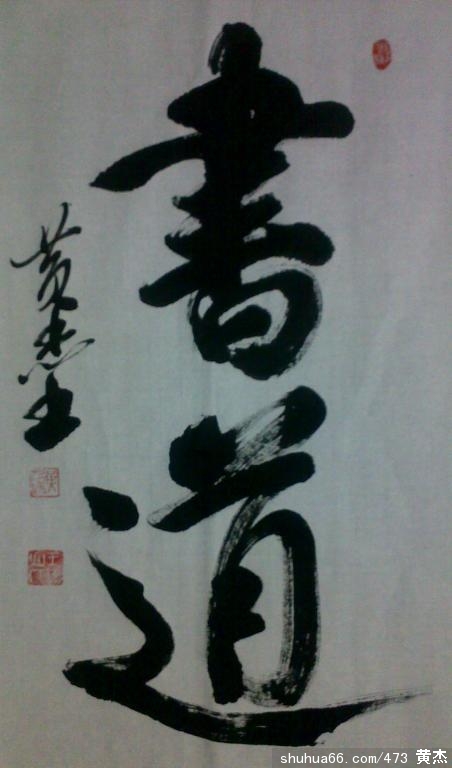 書道
黄杰书
shuhua66.com/473 黄杰